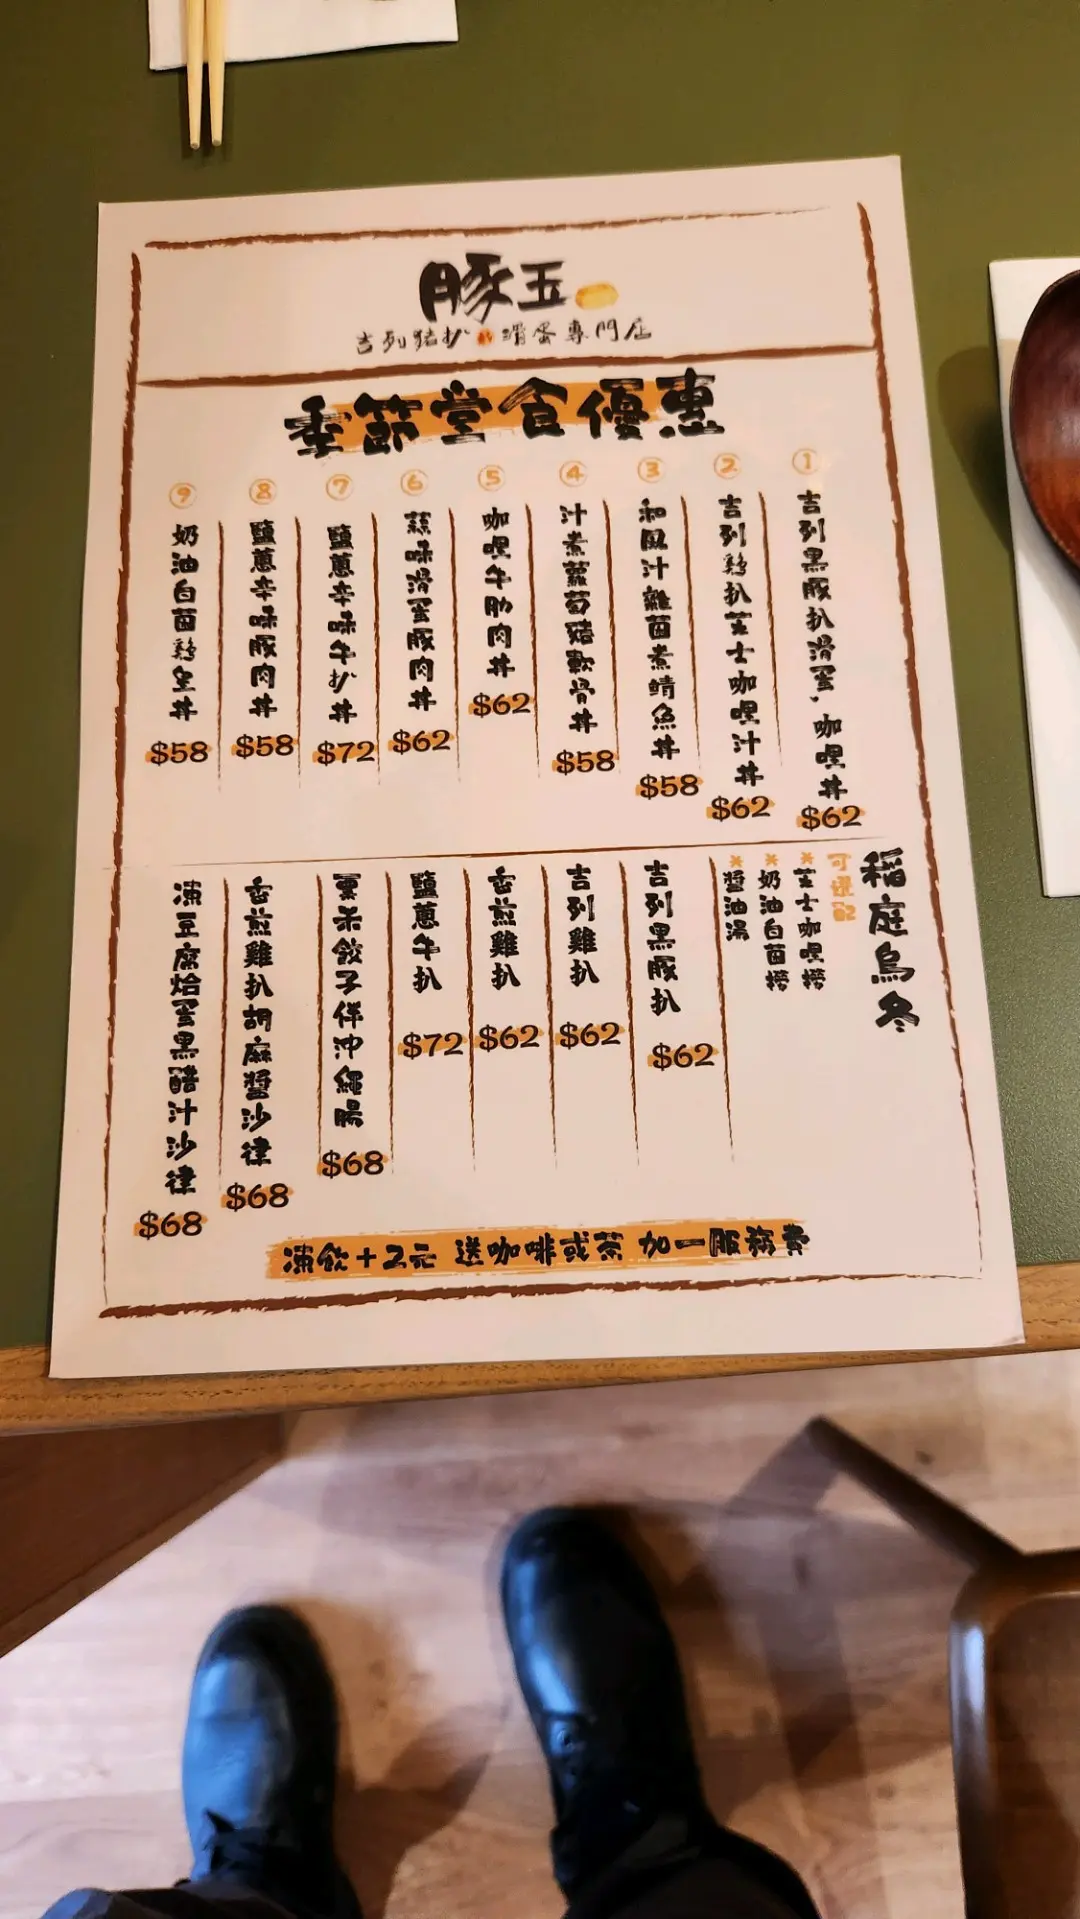 豚玉
吉列豬扒 滑蛋專門店
季節堂食優惠
① 吉列黑豚扒滑蛋、咖喱丼 $62
② 吉列鷄扒芝士咖喱汁丼 $62
③ 和風汁雜菌煮鯖魚丼 $58
④ 汁煮蘿蔔豬軟骨丼 $58
⑤ 咖喱牛肋肉丼 $62
⑥ 蒜味滑蛋豚肉丼 $62
⑦ 鹽蔥辛味牛扒丼 $72
⑧ 鹽蔥辛味豚肉丼 $58
⑨ 奶油白菌鷄皇丼 $58
稻庭烏冬
可選配
*芝士咖喱撈
*奶油白菌撈
*醬油湯
吉列黑豚扒 $62
吉列雞扒 $62
香煎雞扒 $62
鹽蔥牛扒 $72
粟米餃子伴沖繩腸 $68
香煎雞扒胡麻醬沙律 $68
凍豆腐烚蛋黑醋汁沙律 $68
凍飲+2元 送咖啡或茶 加一服務費